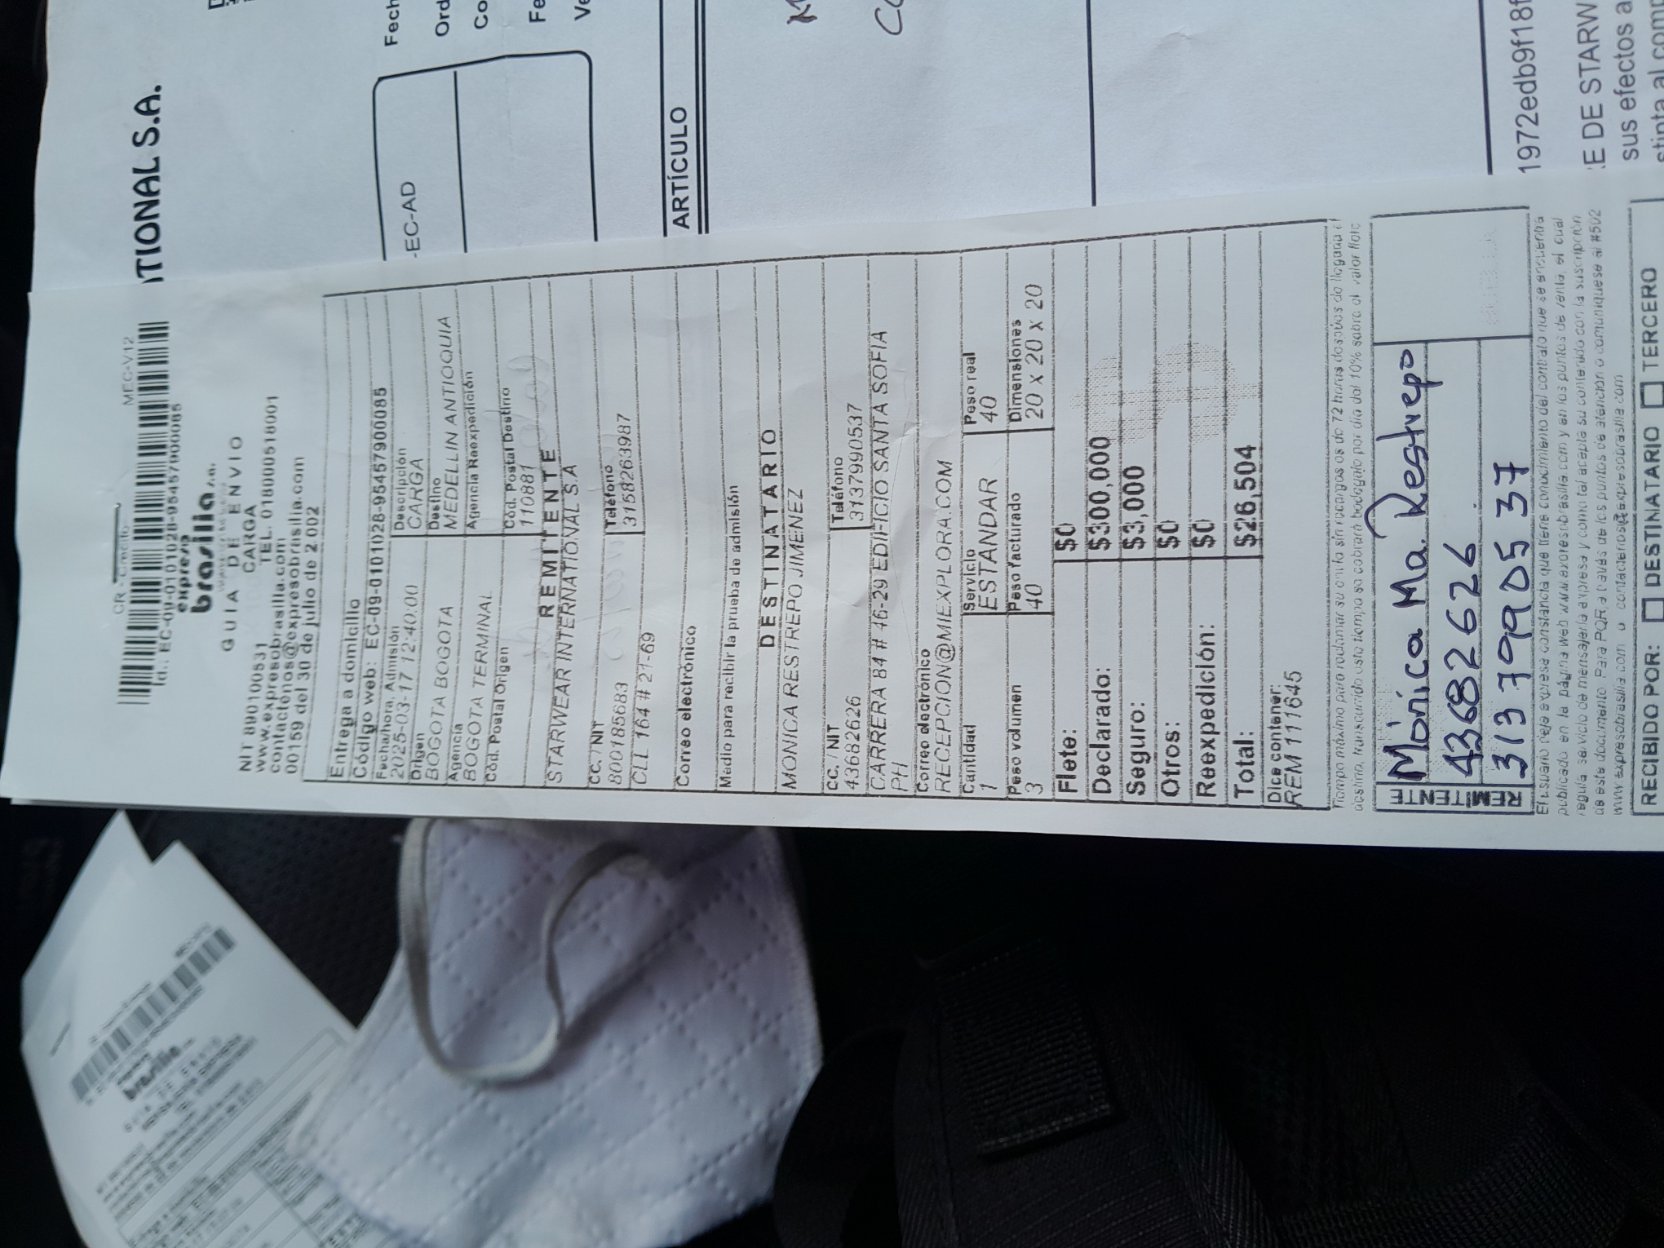 TIONAL S.A.
CR - Crédito
MEC-V12
Id.: EC-09-0101028-9545790085
expreso
brasilia s.a.
GUIA DE ENVIO
CARGA
NIT 890100531
TEL. 018000518001
www.expresobrasilia.com
contactenos@expresobrasilia.com
00159 del 30 de julio de 2.002
Entrega a domicilio
Código web: EC-09-0101028-95457900085
Fecha/hora Admisión
Descripción
2025-03-17 12:40:00
CARGA
Origen
Destino
BOGOTA BOGOTA
MEDELLIN ANTIOQUIA
Agencia
Agencia Reexpedición
BOGOTA TERMINAL
Cód. Postal Origen
Cód. Postal Destino
110881
REMITENTE
STARWEAR INTERNATIONAL S.A
CC. / NIT
Teléfono
800185683
3158263987
CLL 164 # 21-69
Correo electrónico
Medio para recibir la prueba de admisión
DESTINATARIO
MONICA RESTREPO JIMENEZ
CC. / NIT
Teléfono
43682626
3137990537
CARRERA 84 # 46-29 EDIFICIO SANTA SOFIA
PH
Correo electrónico
RECEPCION@MIEXPLORA.COM
Cantidad
Servicio
Peso real
1
ESTANDAR
40
Peso volumen
Peso facturado
Dimensiones
3
40
20 x 20 x 20
Flete: $0
Declarado: $300,000
Seguro: $3,000
Otros: $0
Reexpedición: $0
Total: $26,504
Dice contener:
REM 111645
Tiempo máximo para reclamar su envío sin recargos es de 72 horas después de llegada a
destino, transcurrido este tiempo se cobrará bodegaje por día del 10% sobre el valor flete
REMITENTE
Mónica Ma. Restrepo
43682626.
313 799 05 37
El usuario deja expresa constancia que tiene conocimiento del contrato que se encuentra
publicado en la página web www.expresobrasilia.com y en los puntos de venta, el cual
regula servicio de mensajería expresa y como tal acepta su contenido con la suscripción
de este documento. Para PQR a través de los puntos de atención o comuniquese al #502
www.expresobrasilia.com u contactenos@expresobrasilia.com
RECIBIDO POR: DESTINATARIO TERCERO
Fech
Ord
Co
Fe
Ve
-EC-AD
ARTÍCULO
1972edb9f18f
E DE STARW
sus efectos a
stinta al comp
brasilia